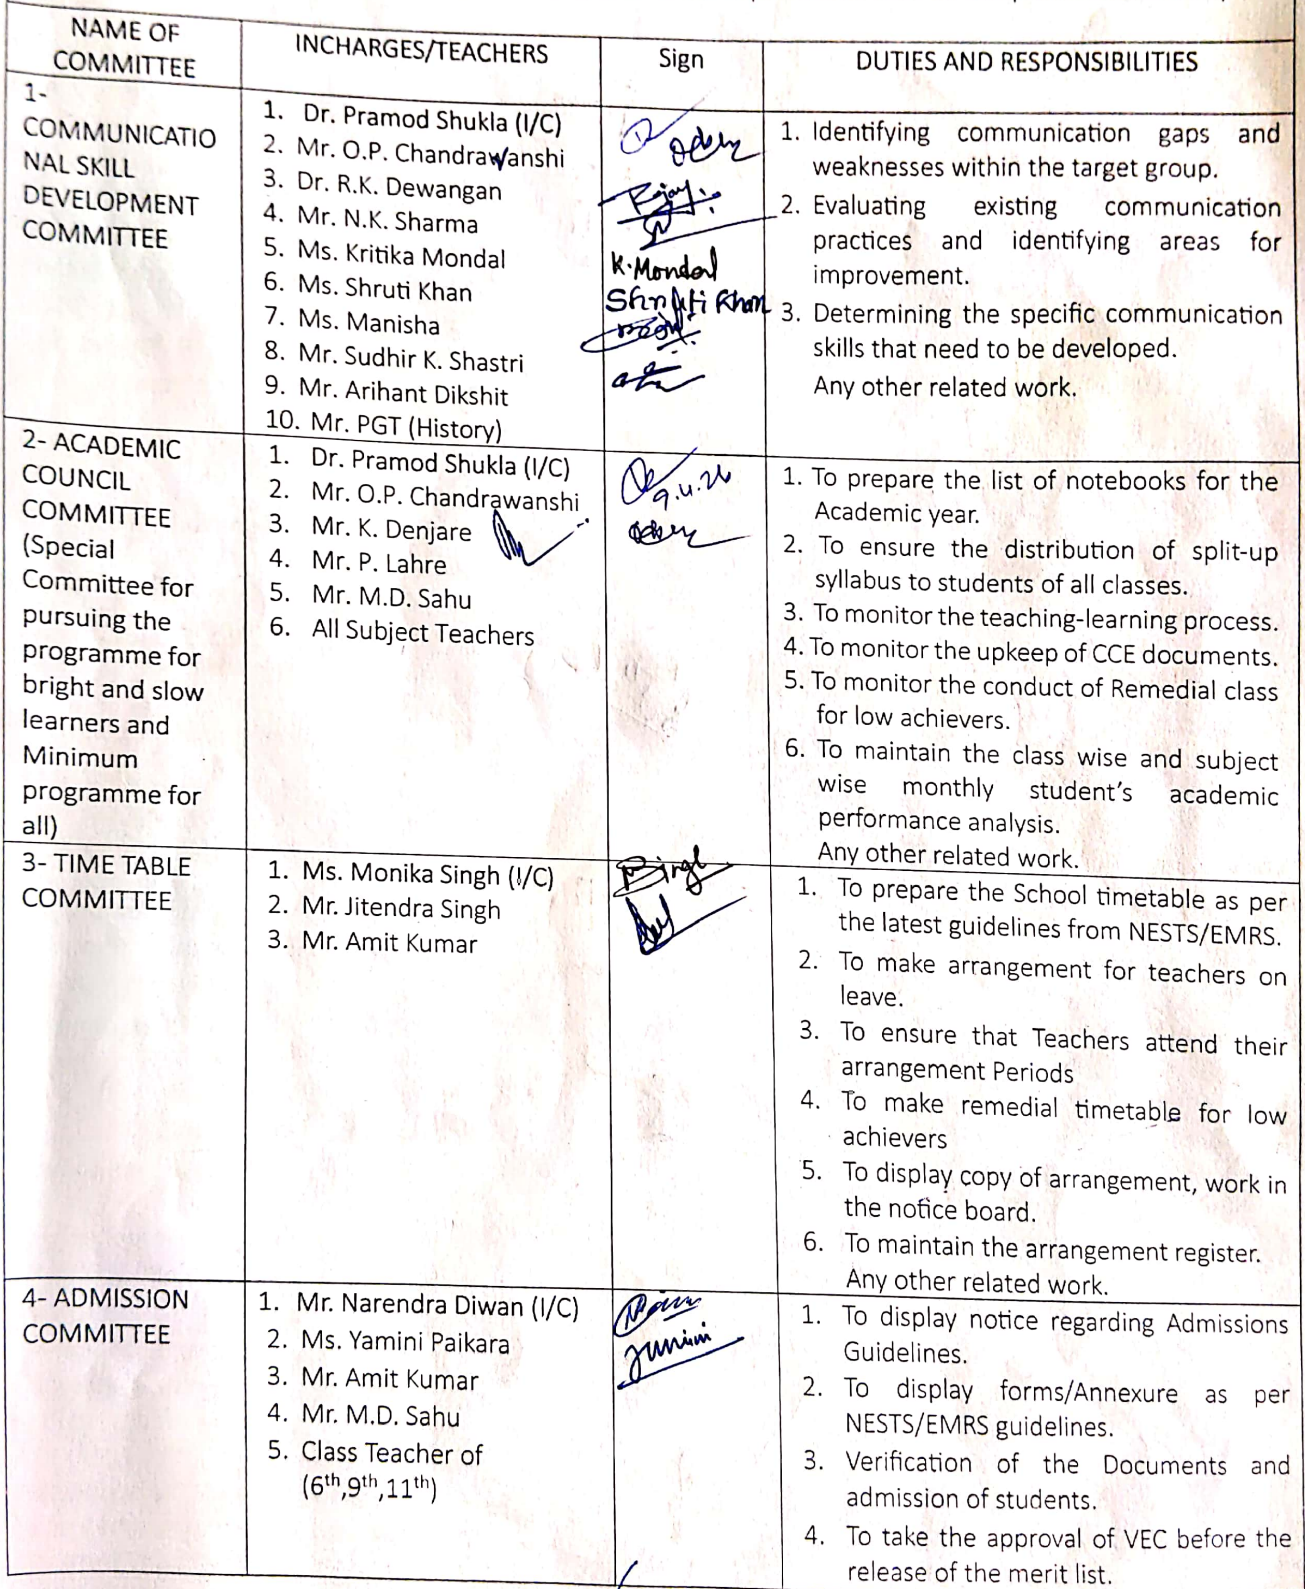 NAME OF
COMMITTEE
INCHARGES/TEACHERS
Sign
DUTIES AND RESPONSIBILITIES
1-
COMMUNICATIO
NAL SKILL
DEVELOPMENT
COMMITTEE
1. Dr. Pramod Shukla (I/C)
2. Mr. O.P. Chandrawanshi
3. Dr. R.K. Dewangan
4. Mr. N.K. Sharma
5. Ms. Kritika Mondal
6. Ms. Shruti Khan
7. Ms. Manisha
8. Mr. Sudhir K. Shastri
9. Mr. Arihant Dikshit
10. Mr. PGT (History)
K. Mondal
Shruti Khan
1. Identifying communication gaps and
weaknesses within the target group.
2. Evaluating existing communication
practices and identifying areas for
improvement.
3. Determining the specific communication
skills that need to be developed.
Any other related work.
2- ACADEMIC
COUNCIL
COMMITTEE
(Special
Committee for
pursuing the
programme for
bright and slow
learners and
Minimum
programme for
all)
1. Dr. Pramod Shukla (I/C)
2. Mr. O.P. Chandrawanshi
3. Mr. K. Denjare
4. Mr. P. Lahre
5. Mr. M.D. Sahu
6. All Subject Teachers
1. To prepare the list of notebooks for the
Academic year.
2. To ensure the distribution of split-up
syllabus to students of all classes.
3. To monitor the teaching-learning process.
4. To monitor the upkeep of CCE documents.
5. To monitor the conduct of Remedial class
for low achievers.
6. To maintain the class wise and subject
wise monthly student's academic
performance analysis.
Any other related work.
3- TIME TABLE
COMMITTEE
1. Ms. Monika Singh (I/C)
2. Mr. Jitendra Singh
3. Mr. Amit Kumar
1. To prepare the School timetable as per
the latest guidelines from NESTS/EMRS.
2. To make arrangement for teachers on
leave.
3. To ensure that Teachers attend their
arrangement Periods
4. To make remedial timetable for low
achievers
5. To display copy of arrangement, work in
the notice board.
6. To maintain the arrangement register.
Any other related work.
4- ADMISSION
COMMITTEE
1. Mr. Narendra Diwan (I/C)
2. Ms. Yamini Paikara
3. Mr. Amit Kumar
4. Mr. M.D. Sahu
5. Class Teacher of
(6th,9th,11th)
1. To display notice regarding Admissions
Guidelines.
2. To display forms/Annexure as per
NESTS/EMRS guidelines.
3. Verification of the Documents and
admission of students.
4. To take the approval of VEC before the
release of the merit list.